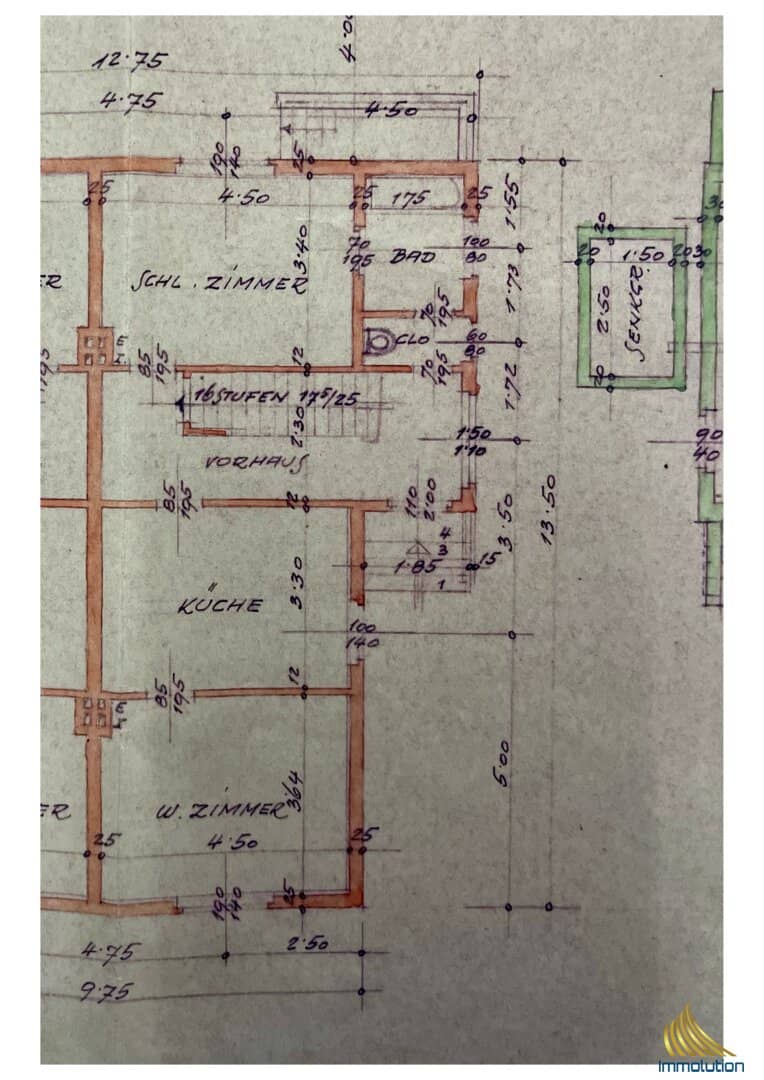 4.0
12.75
4.75
4.50
190
140
25
25
4.50
25
175
25
1.55
70
195
3.40
BAD
100
80
1.73
SCHL. ZIMMER
ER
70
195
CLO
60
80
20
20
1.50
20
30
2.50
SENKGR.
20
195
85
195
12
70
195
1.72
16 STUFEN 17⁵/25
2.30
1.50
1.10
90
40
VORHAUS
85
195
12
110
2.00
3.50
13.50
4
3
1.85
15
1
3.30
KÜCHE
100
140
12
85
195
5.00
ER
W. ZIMMER
3.64
25
4.50
25
190
140
25
4.75
2.50
9.75
Immolution